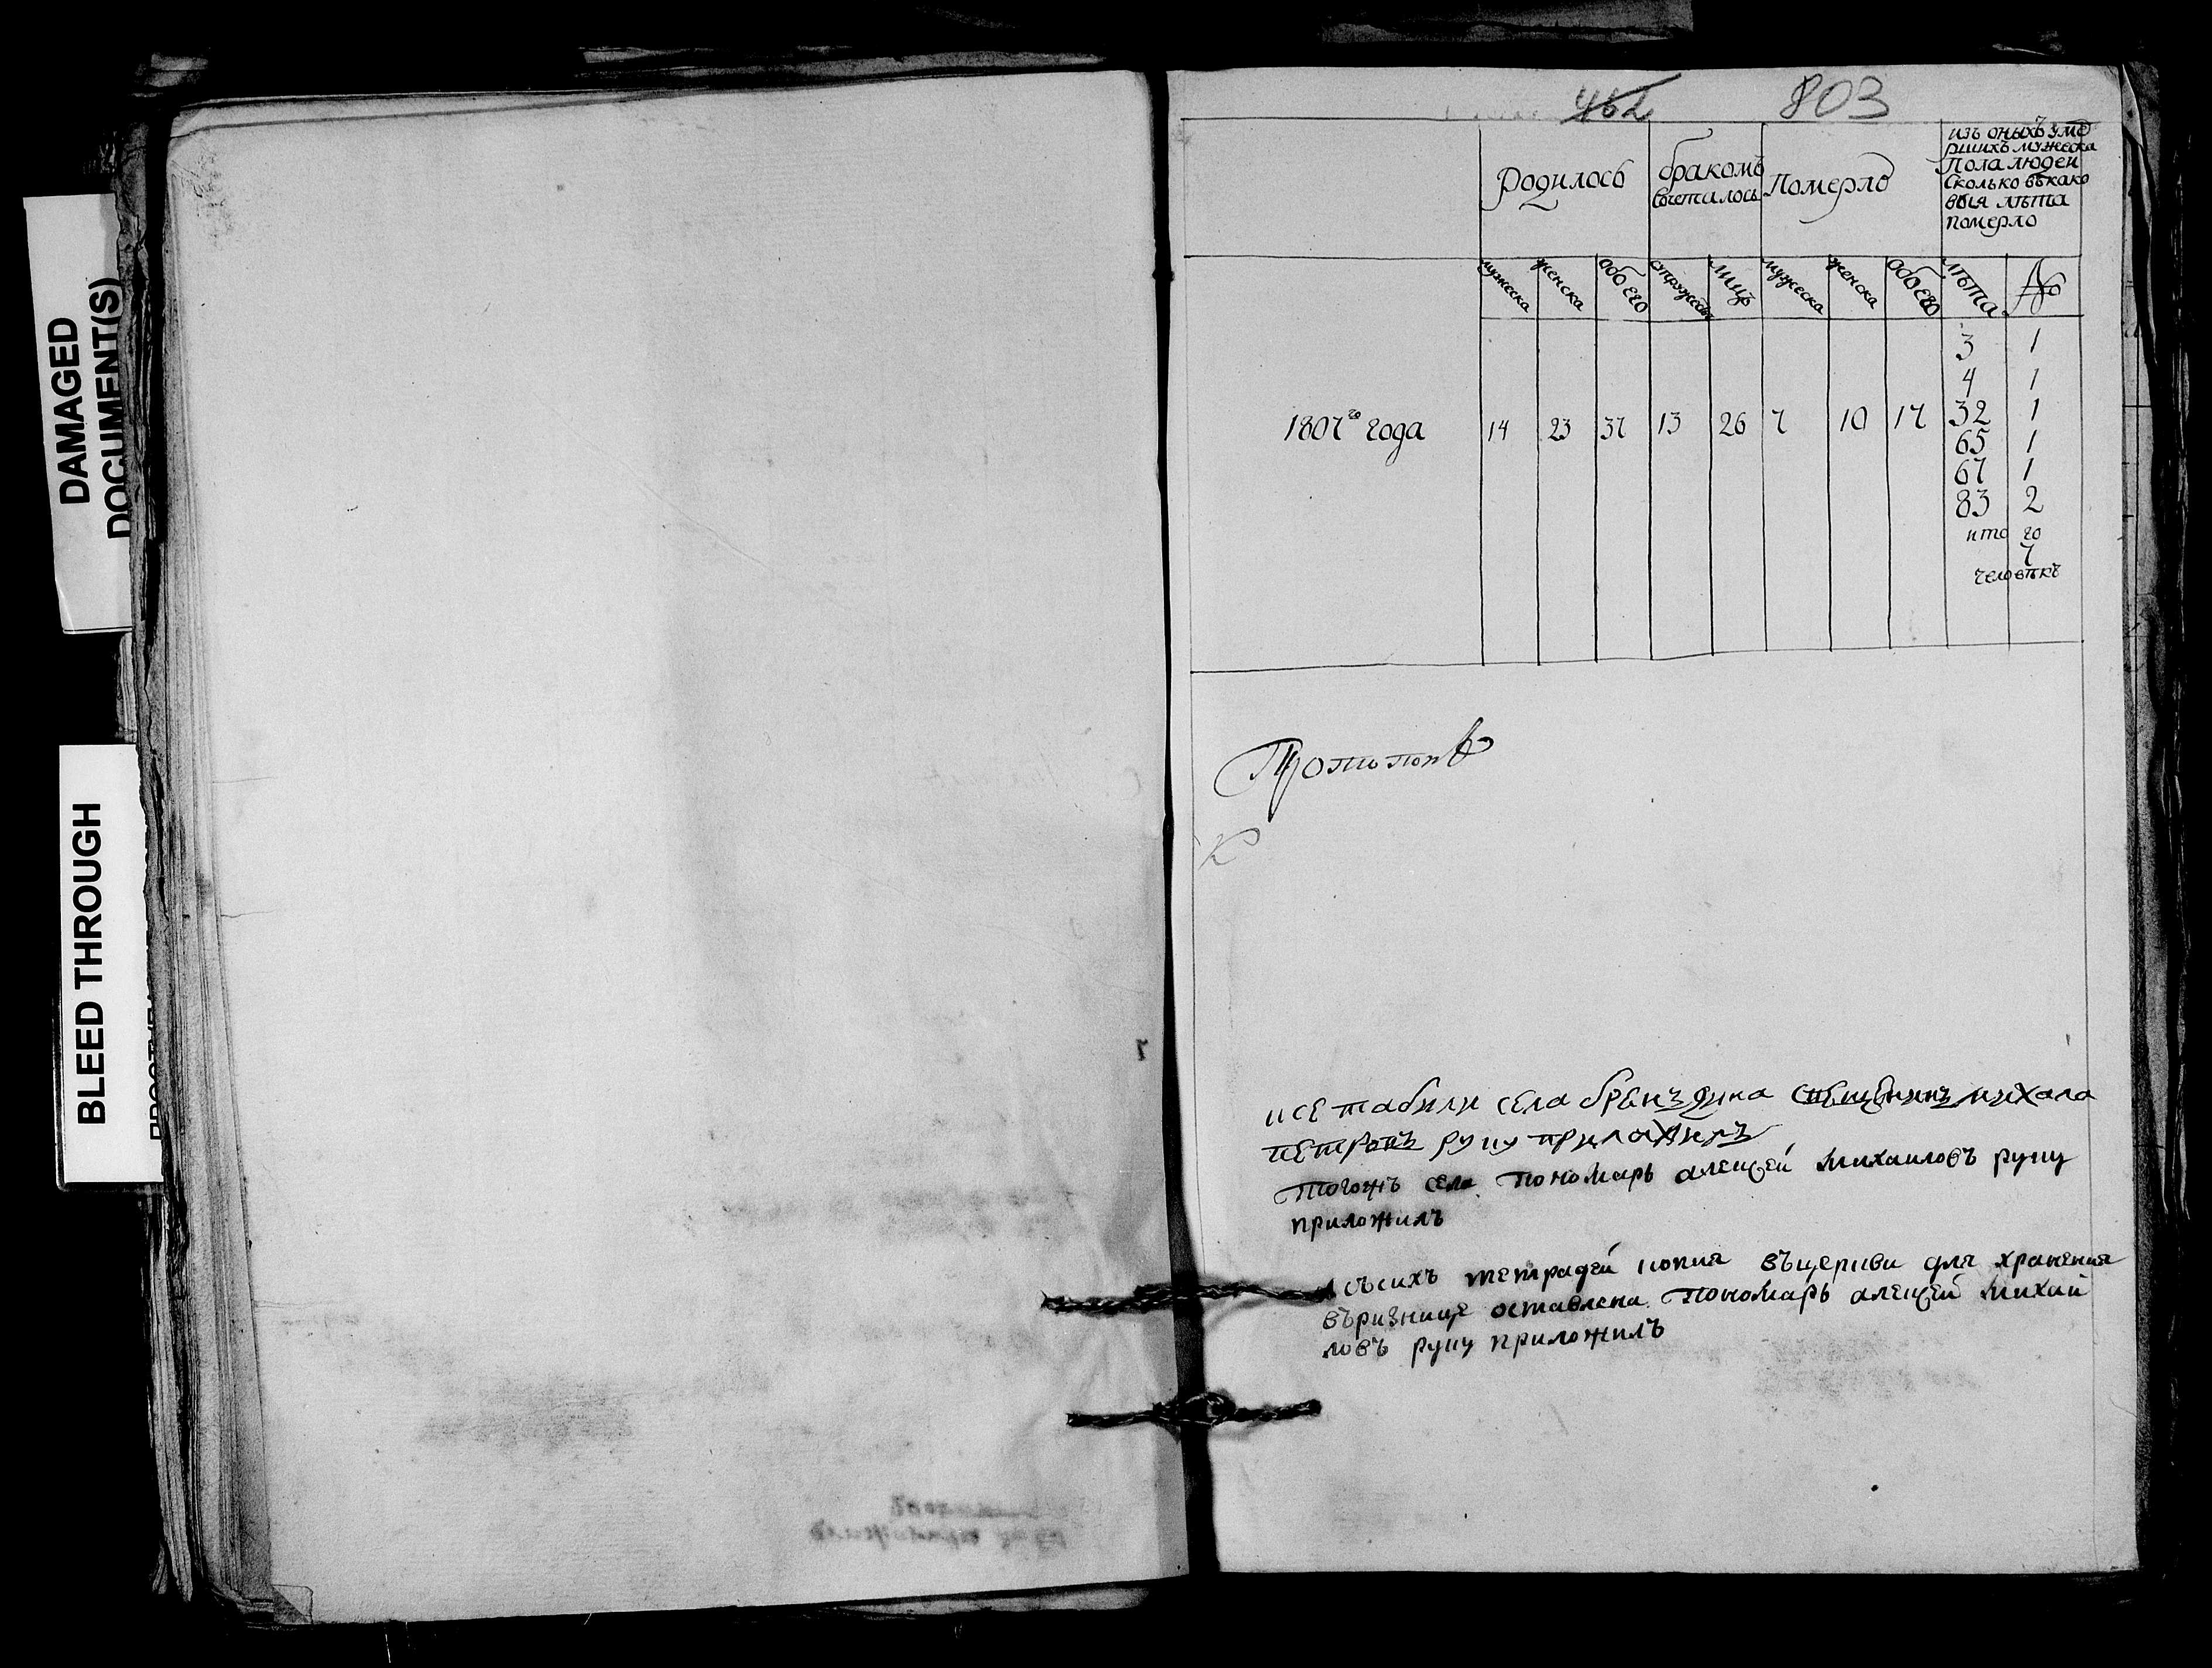 DAMAGED
DOCUMENT(S)
BLEED THROUGH
462 803
Родилось
бракомъ
сочеталось
Померло
изъ оныхъ уме
ршихъ мужеска
Пола людей
Сколько въкако
выя лѣта
померло
мужеска женска обоего супружествъ лицъ мужеска женска обоего лѣта №
3 1
4 1
1807го года 14 23 37 13 26 7 10 17 32 1
65 1
67 1
83 2
итого
7
человѣкъ
К
села священникъ михала
петровъ руку приложилъ
тогожъ села Пономарь алексей Михаиловъ руку
приложилъ
А съсихъ тетрадей копия въцеркви для хранения
въризнице оставлена Пономарь алексей Михаи
ловъ руку приложилъ